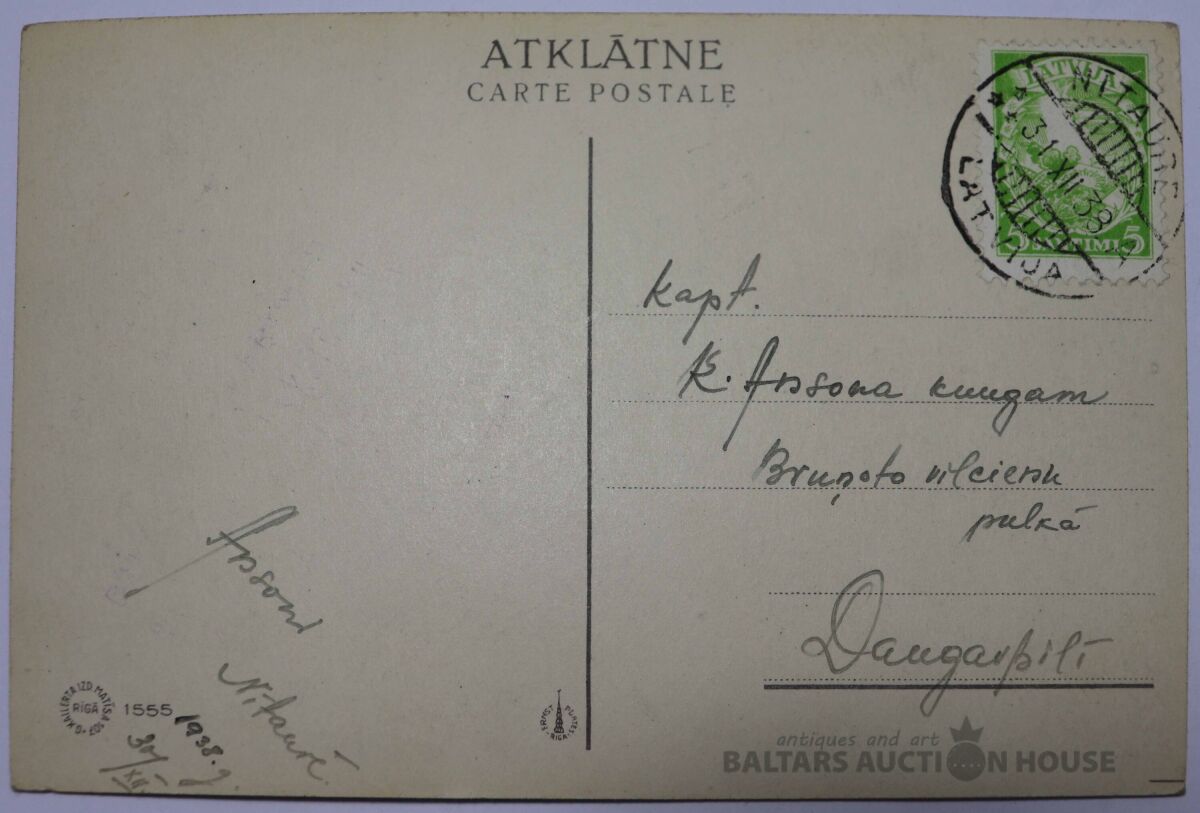 ATKLĀTNE
CARTE POSTALE
LATVIJA
5 SANTIMI 5
NĪTAURE
31 XII 38
LATVIJA
Kapt.
K. Apsona kungam
Bruņoto vilcienu
pulkā
Daugavpilī
Apsoni
Nītaurē
1938. g.
30/XII.
O. KAILERTA IZD. MATĪSA
RĪGĀ
1555
ERNST PLATES
RĪGA
antiques and art
BALTARS AUCTION HOUSE